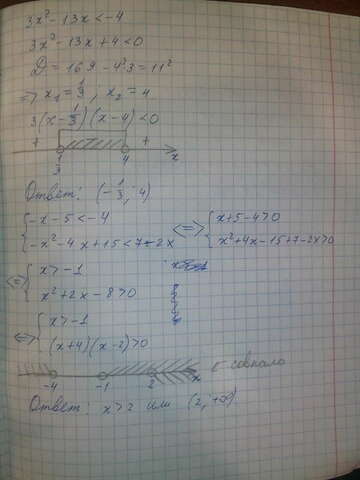 3x² - 13x < -4
3x² - 13x + 4 < 0
D = 169 - 4²3 = 11²
=> x₁ = 1/3, x₂ = 4
3(x - 1/3)(x - 4) < 0
+ - +
1/3 4 x
Ответ: (-1/3; 4)
{ -x - 5 < -4
{ -x² - 4x + 15 < 7 - 2x
<=> { x + 5 - 4 > 0
{ x² + 4x - 15 + 7 - 2x > 0
<=> { x > -1
{ x² + 2x - 8 > 0
<=> { x > -1
{ (x + 4)(x - 2) > 0
-4 -1 2 x
совпало
Ответ: x > 2 или (2; +∞)